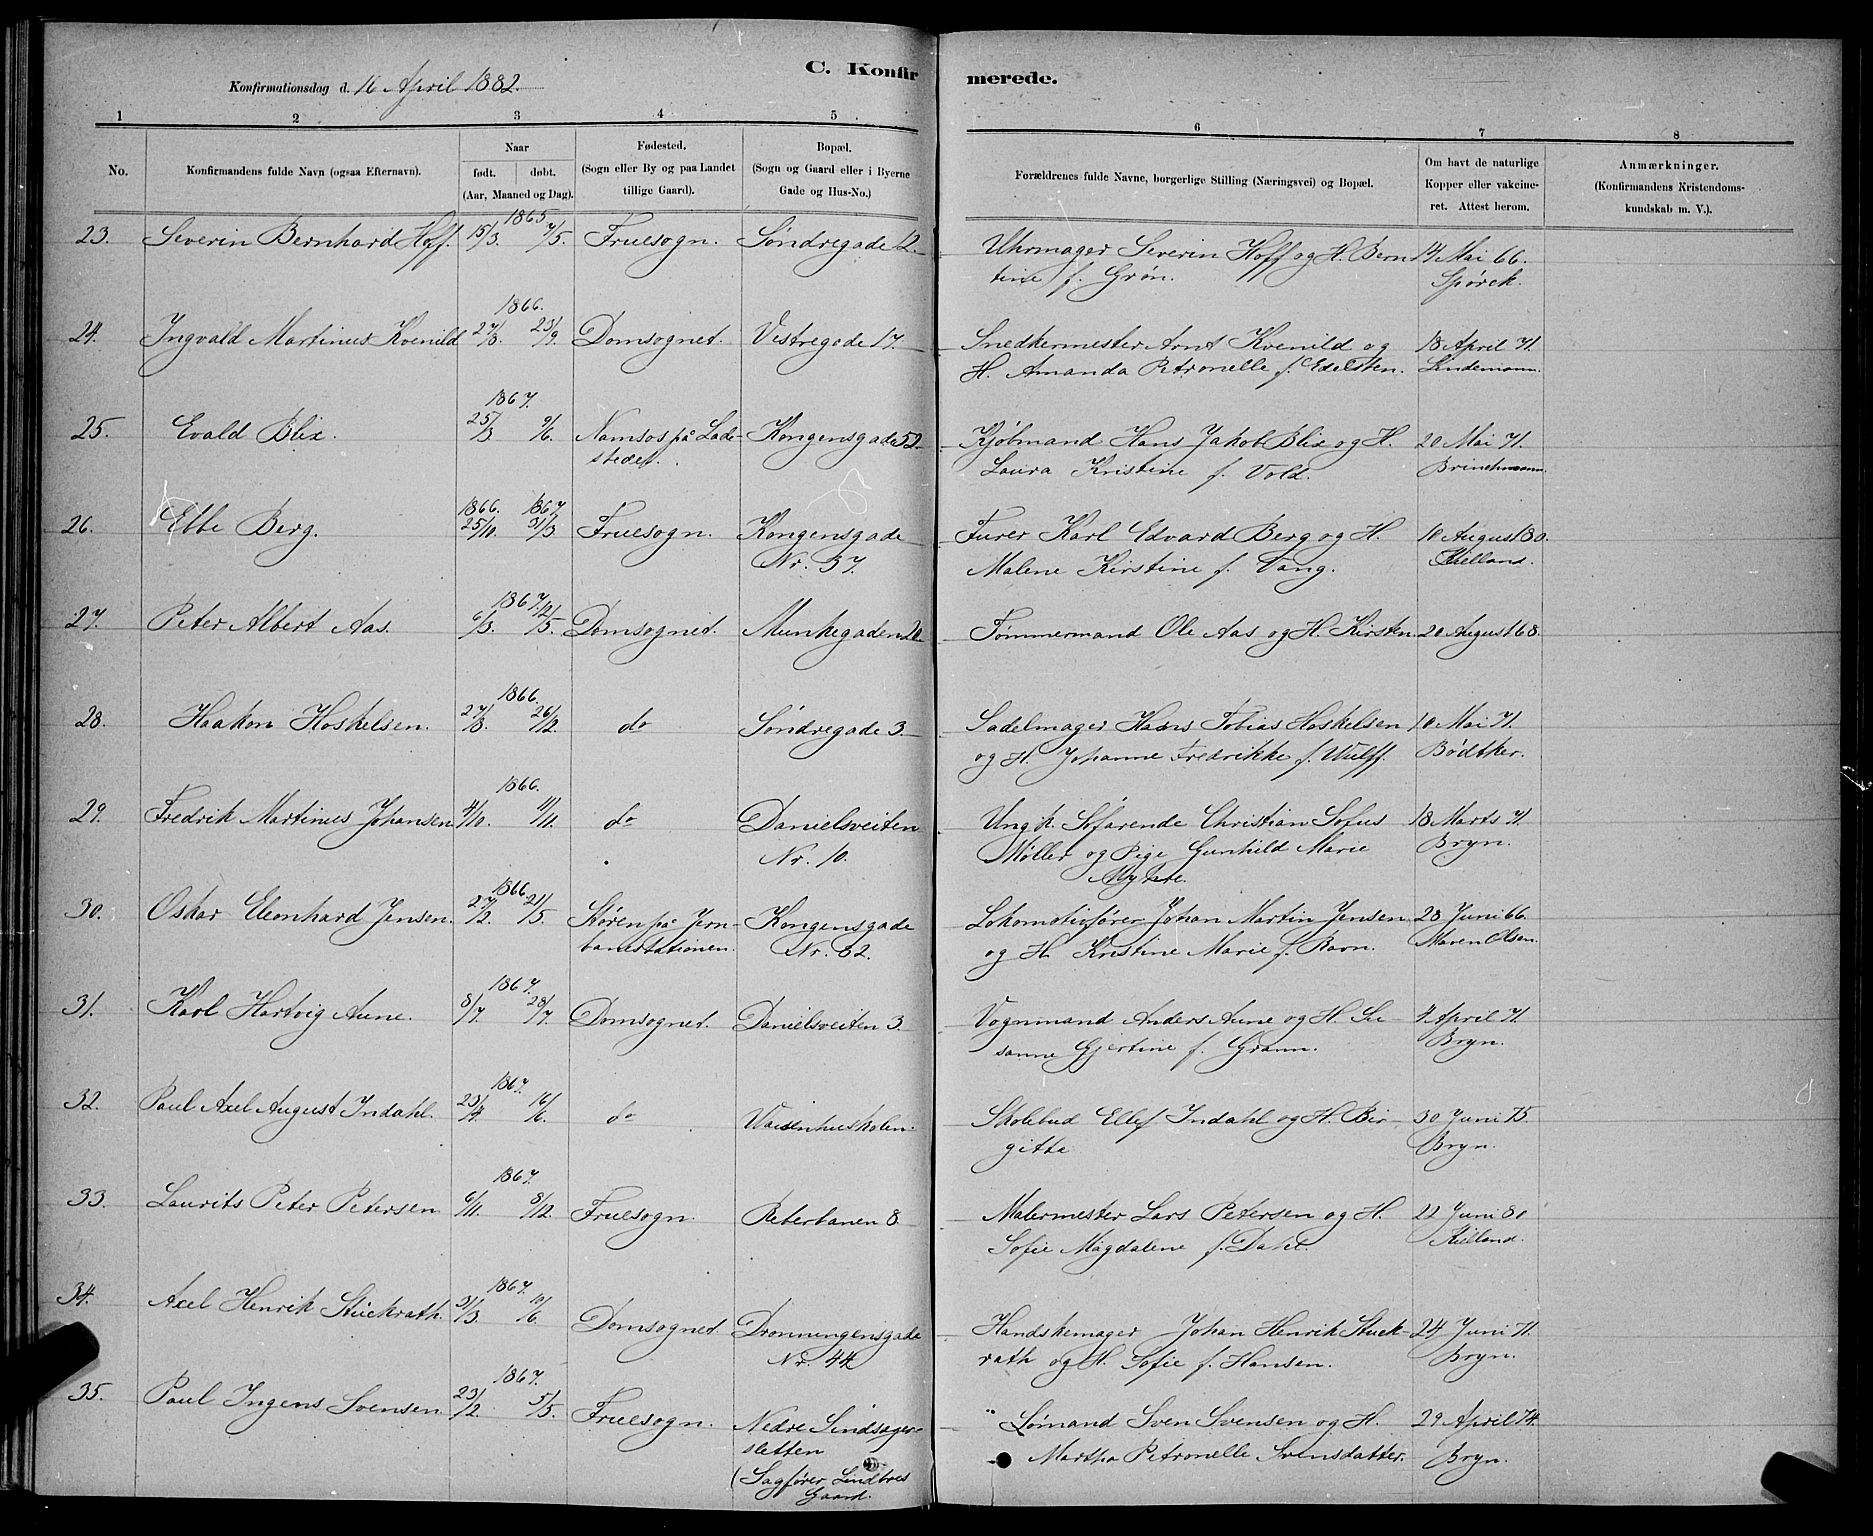 C. Konfirmerede.
Konfirmationsdag d. 16 April 1882.
1 2 3 4 5 6 7 8
No.
Konfirmandens fulde Navn (ogsaa Efternavn).
Naar
født. døbt.
(Aar, Maaned og Dag).
Fødested.
(Sogn eller By og paa Landet
tillige Gaard).
Bopæl.
(Sogn og Gaard eller i Byerne
Gade og Hus-No.)
Forældrenes fulde Navne, borgerlige Stilling (Næringsvei) og Bopæl.
Om havt de naturlige
Kopper eller vakcine-
ret. Attest herom.
Anmærkninger.
(Konfirmandens Kristendoms-
kundskab m. V.).
1865
23. Severin Bernhard Hoff. 15/3. 7/5. Fruesogn. Søndregade 12. Uhrmager Severin Hoff og H. Bern 14 Mai 66.
tine f. Grøn. Spørck.
1866.
24. Ingvald Martinus Kvenild 27/8. 23/9. Domsognet. Vestregade 17. Snedkermester Arnt Kvenild og 18 April 71.
H. Amanda Petronelle f. Edelsten. Lindemann.
1867.
25. Evald Blix. 25/3 9/6. Namsos på Lade- Kongensgade 52. Kjøbmand Hans Jakob Blix og H. 20 Mai 71.
stedet. Laura Kristine f. Vold. Brinchmann.
1866. 1867.
26. Ebbe Berg. 25/10. 31/3. Fruesogn. Kongensgade Furer Karl Edvard Berg og H. 10 August 80.
Nr. 57. Malene Kirstine f. Vang. Kielland.
1867.
27. Peter Albert Aas. 6/3. 12/5. Domsognet. Munkegaden 20 Tømmermand Ole Aas og H. Kirsten. 20 August 68.
1866.
28. Haakon Hoskelsen. 27/8. 26/12. do Søndregade 3. Sadelmager Hans Tobias Hoskelsen 10 Mai 71.
og H. Johanne Fredrikke f. Wulff. Bødtker.
1866.
29. Fredrik Martinus Johansen 4/10. 11/11. do Danielsveiten Ungk. Søfarende Christian Sofus 18 Marts 71.
Nr. 10. Møller og Pige Gunhild Marie Bryn.
Myhre.
1866.
30. Oskar Eleonhard Jensen. 27/2. 21/5. Støren på Jern- Kongensgade Lokomotivfører Johan Martin Jensen 28 Juni 66.
banestationen. Nr. 82. og H. Kristine Marie f. Ravn. Maren Olsen.
1867.
31. Karl Hartvig Aune. 8/7. 28/7. Domsognet. Danielsveiten 3. Vognmand Anders Aune og H. Su- 4 April 71.
sanne Gjertine f. Grann. Bryn.
1867.
32. Paul Axel August Indahl. 23/4. 16/6. do Waisenhuskolen. Skolebud Ellef Indahl og H. Bir- 30 Juni 75.
gitte Bryn.
1867.
33. Laurits Peter Petersen 6/11. 8/12. Fruesogn. Reberbanen 8 Malermester Lars Petersen og H. 22 Juni 80
Sofie Magdalene f. Dahl. Kielland.
1867.
34. Axel Henrik Stuckrath. 31/3. 10/6. Domsognet. Dronningensgade Handskemager Johan Henrik Stuck- 24 Juni 71.
Nr. 44 rath og H. Sofie f. Hansen. Bryn.
1867.
35. Paul Ingens Svensen 23/2. 5/5. Fruesogn. Nedre Sindsager- Sømand Sven Svensen og H. 29 April 74.
sletten Martha Petronelle Svensdatter. Bryn.
(Sagfører Lindboes
Gaard.